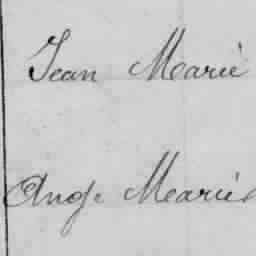 Jean Marie
Ange Marie